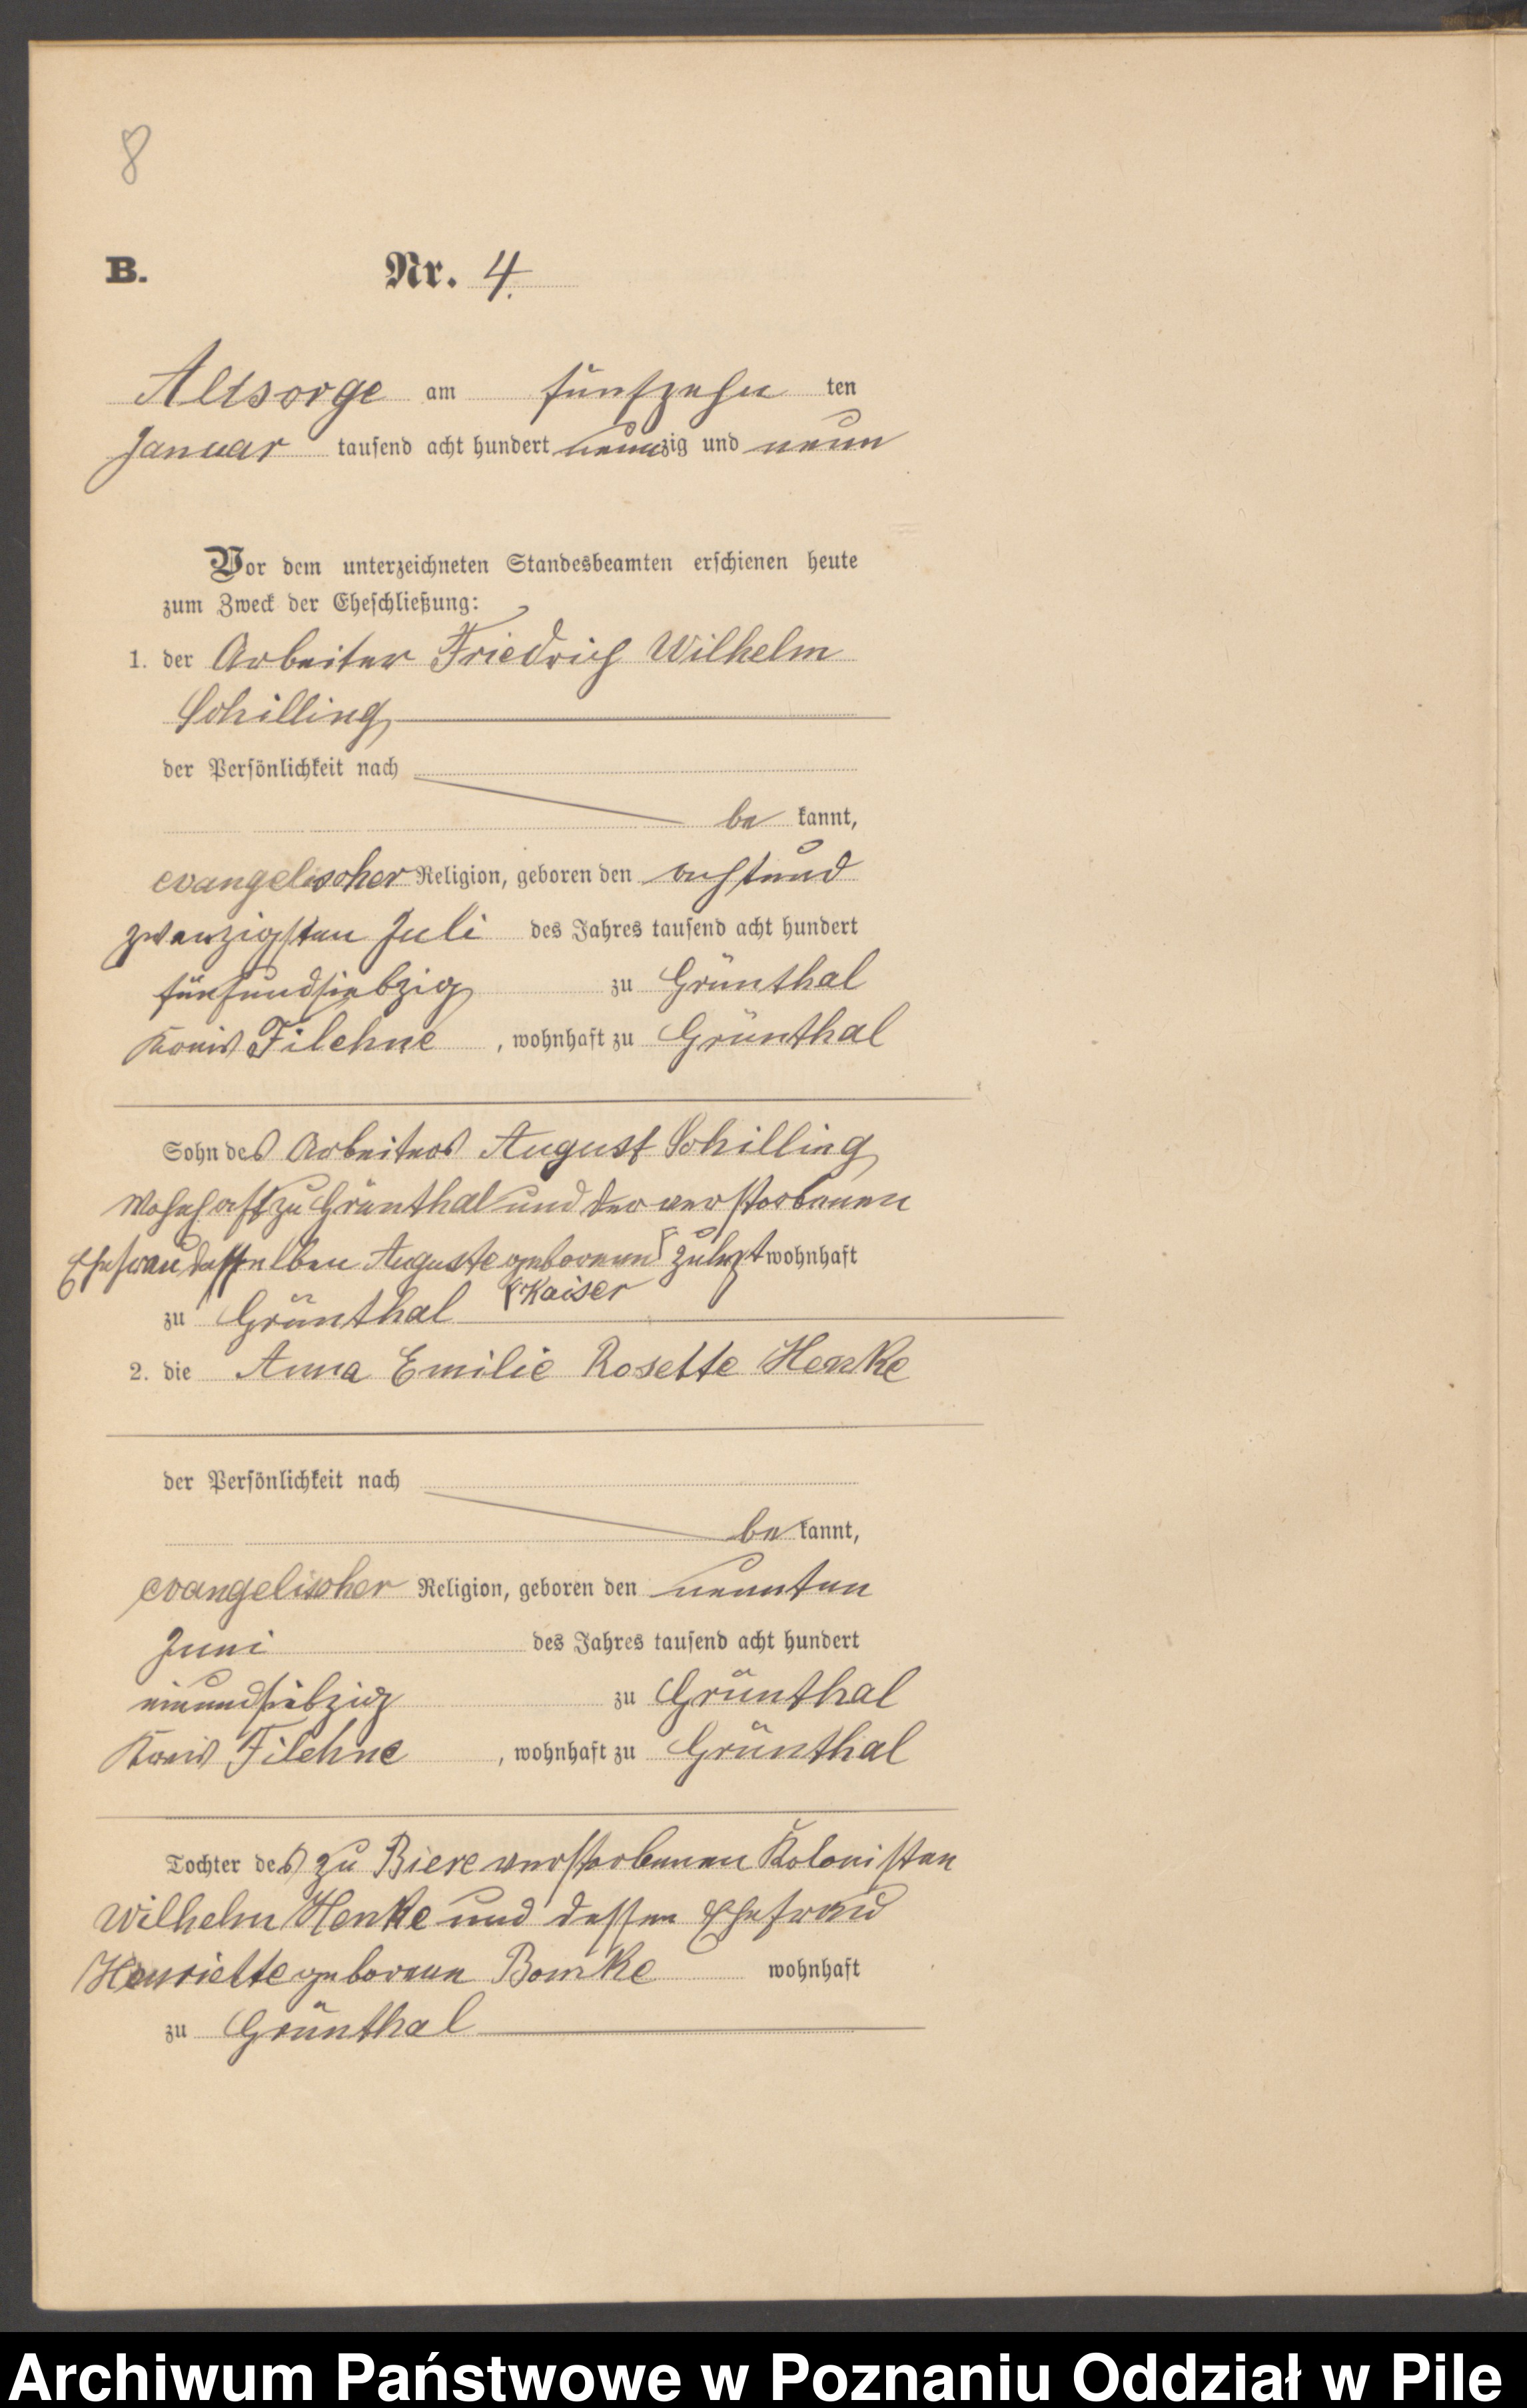 8
B. Nr. 4.
Altsorge am fünfzehn ten
Januar tausend acht hundert neunzig und neun
Vor dem unterzeichneten Standesbeamten erschienen heute
zum Zweck der Eheschließung:
1. der Arbeiter Friedrich Wilhelm
Schilling
der Persönlichkeit nach
be kannt,
evangelischer Religion, geboren den achtund
zwanzigsten Juli des Jahres tausend acht hundert
fünfundsiebzig zu Grünthal
Kreis Filehne, wohnhaft zu Grünthal
Sohn des Arbeiters August Schilling
wohnhaft zu Grünthal und der verstorbenen
Ehefrau desselben Auguste geborenen Γ zuletzt wohnhaft
Γ Kaiser
zu Grünthal
2. die Anna Emilie Rosette Henke
der Persönlichkeit nach
be kannt,
evangelischer Religion, geboren den neunten
Juni des Jahres tausend acht hundert
einundsiebzig zu Grünthal
Kreis Filehne, wohnhaft zu Grünthal
Tochter des zu Biere verstorbenen Kolonisten
Wilhelm Henke und dessen Ehefrau
Henriette geborene Bomke wohnhaft
zu Grünthal
Archiwum Państwowe w Poznaniu Oddział w Pile